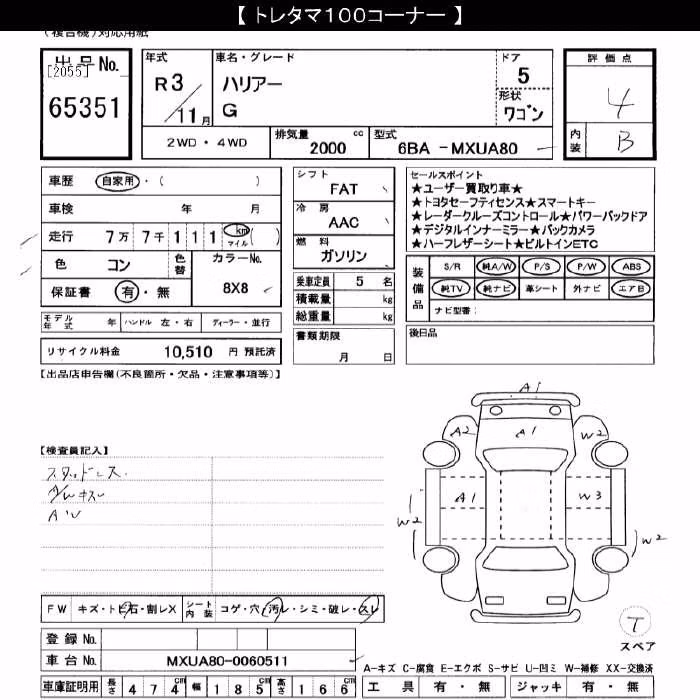 【 トレタマ100コーナー 】
(複合機)対応用紙
出品No.
[2055]
65351
年式
R 3
11 月
車名・グレード
ハリアー
G
ドア
5
形状
ワゴン
2WD・4WD
排気量 cc
2000
型式
6BA -MXUA80
評価点
4
内装
B
車歴 自家用・( )
車検 年 月
走行 7万 7千 1 1 1 km マイル ( )
色 コン
色替
カラーNo.
8X8
保証書 有・無
モデル年式 年 ハンドル 左・右 ディーラー・並行
リサイクル料金 10,510 円 預託済
シフト
FAT
冷房
AAC
燃料
ガソリン
乗車定員 5 名
積載量 kg
総重量 kg
書類期限
月 日
セールスポイント
★ユーザー買取り車★
★トヨタセーフティセンス★スマートキー
★レーダークルーズコントロール★パワーバックドア
★デジタルインナーミラー★バックカメラ
★ハーフレザーシート★ビルトインETC
装備品
S/R 純A/W P/S P/W ABS
純TV 純ナビ 革シート 外ナビ エアB
ナビ型番:
後日品
【出品店申告欄(不良箇所・欠品・注意事項等)】
【検査員記入】
スタッドレス.
A/Wキズ
A
A1
A2
A1
W2
A1
W3
W2
W2
FW キズ・トビ石・割レX
シート内装 コゲ・穴・汚レ・シミ・破レ・スレ
登録 No.
車台 No. MXUA80-0060511
車庫証明用 長さ 4 7 4 cm 幅 1 8 5 cm 高さ 1 6 6 cm
T
スペア
A-キズ C-腐食 E-エクボ S-サビ U-凹ミ W-補修 XX-交換済
工具 有・無 ジャッキ 有・無